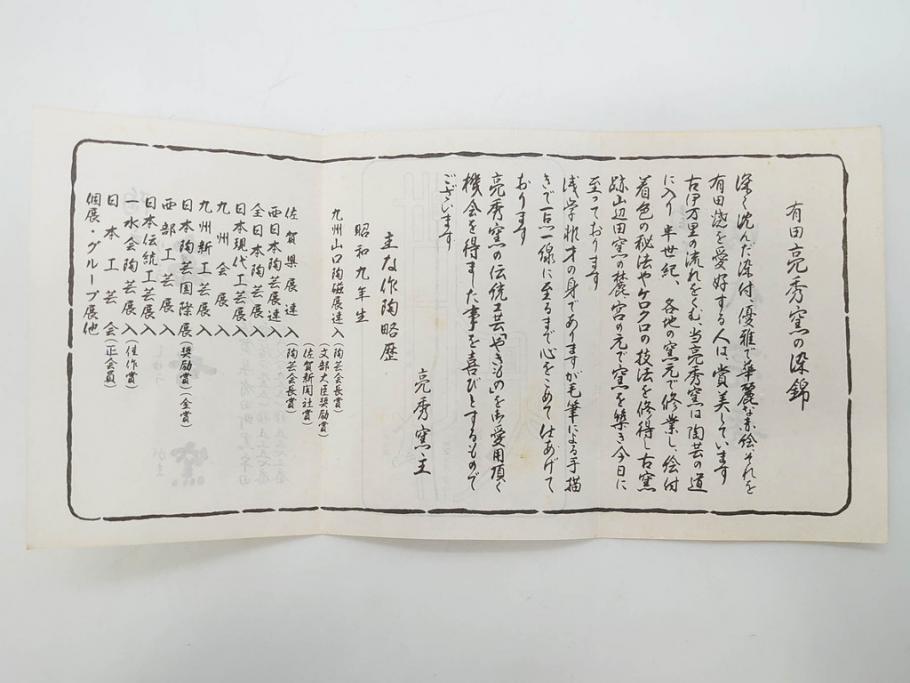 有田亮秀窯の染錦
深く沈んだ染付、優雅で華麗な赤絵、それを
有田焼を愛好する人は、賞美しています
古伊万里の流れをくむ、当亮秀窯は陶芸の道
に入り半世紀、各地の窯元で修業し、絵付
着色の秘法やロクロの技法を修得し古窯
跡山辺田窯の麓、宮の元で窯を築き今日に
至っております
浅学非才の身でありますが毛筆による手描
きで一点一線に至るまで心をこめて仕あげて
おります
亮秀窯の伝統工芸「やきもの」を御愛用頂く
機会を得ました事を喜びとするもので
ございます
亮秀窯主
主な作陶略歴
昭和九年生
九州山口陶磁展連入(陶芸会長賞)
(文部大臣奨励賞)
(佐賀新聞社賞)
佐賀県展連入(陶芸会長賞)
西日本陶芸展連入
全日本陶芸展入
日本現代工芸展入
九州会展入
九州新工芸展入
日本陶芸国際展(奨励賞)(金賞)
西部工芸展入
日本伝統工芸展入
一水会陶芸展入(佳作賞)
日本工芸会(正会員)
個展・グループ展他